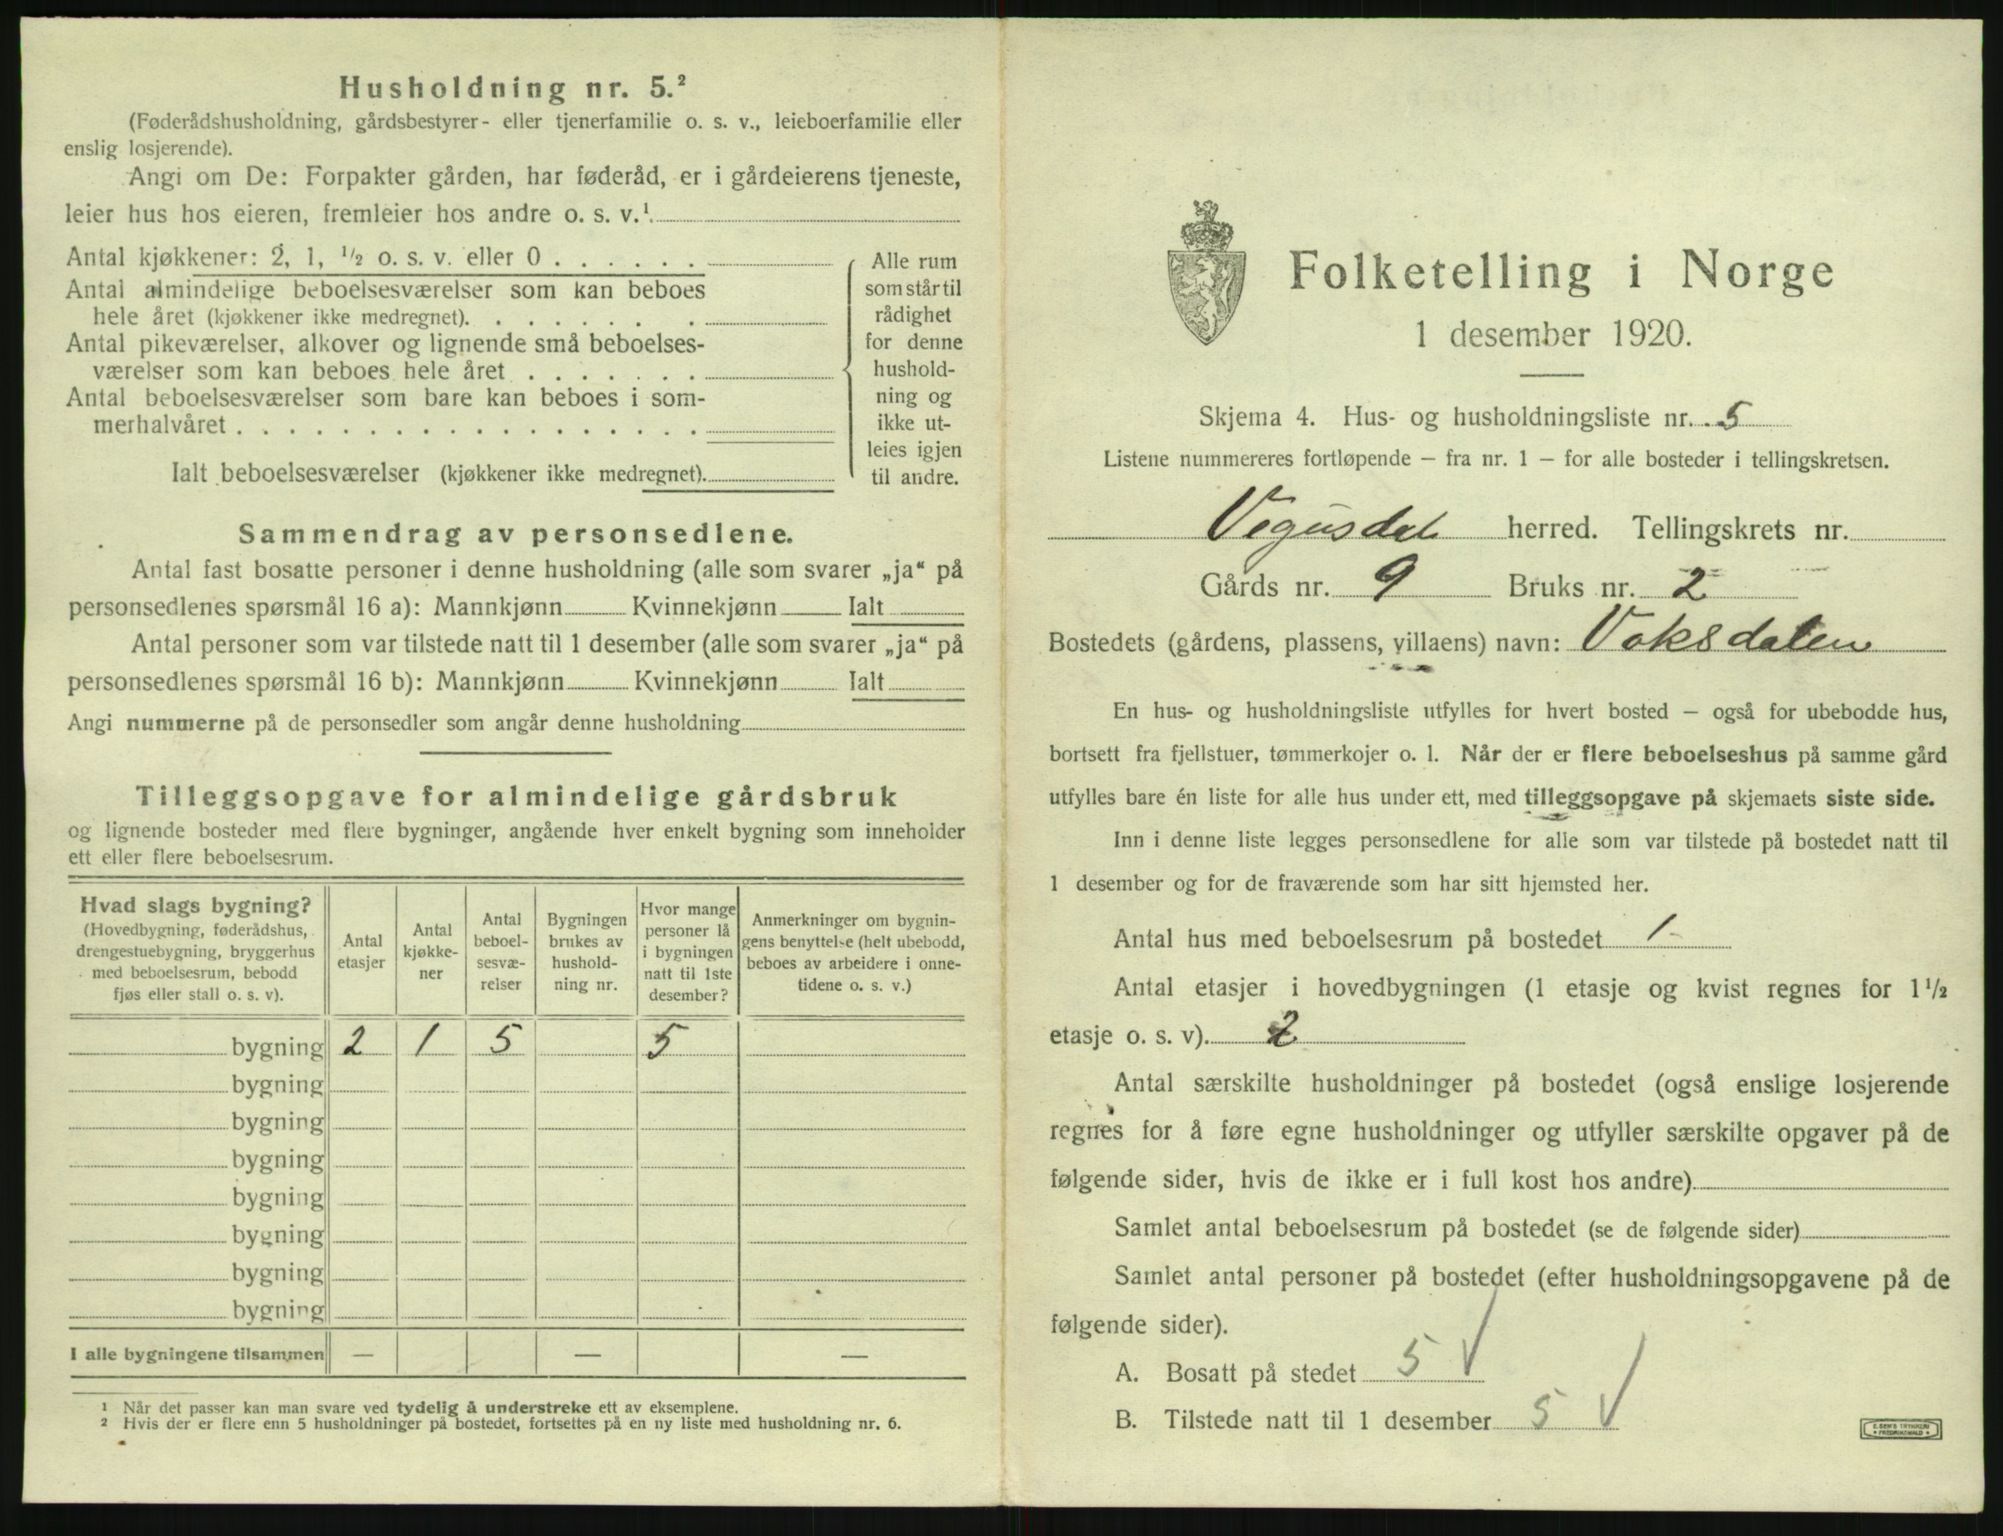 Husholdning nr. 5.²
(Føderådshusholdning, gårdsbestyrer- eller tjenerfamilie o. s. v., leieboerfamilie eller
enslig losjerende).
Angi om De: Forpakter gården, har føderåd, er i gårdeierens tjeneste,
leier hus hos eieren, fremleier hos andre o. s. v.¹
Antal kjøkkener: 2, 1, ½ o. s. v. eller 0 . . . . . .
Antal almindelige beboelsesværelser som kan beboes
hele året (kjøkkener ikke medregnet). . . . . . . .
Antal pikeværelser, alkover og lignende små beboelses-
værelser som kan beboes hele året . . . . . . .
Antal beboelsesværelser som bare kan beboes i som-
merhalvåret . . . . . . . . . . . . . . . . . .
Ialt beboelsesværelser (kjøkkener ikke medregnet).
Alle rum
som står til
rådighet
for denne
hushold-
ning og
ikke ut-
leies igjen
til andre.
Sammendrag av personsedlene.
Antal fast bosatte personer i denne husholdning (alle som svarer „ja“ på
personsedlenes spørsmål 16 a): Mannkjønn Kvinnekjønn Ialt
Antal personer som var tilstede natt til 1 desember (alle som svarer „ja“ på
personsedlenes spørsmål 16 b): Mannkjønn Kvinnekjønn Ialt
Angi nummerne på de personsedler som angår denne husholdning
Tilleggsopgave for almindelige gårdsbruk
og lignende bosteder med flere bygninger, angående hver enkelt bygning som inneholder
ett eller flere beboelsesrum.
Hvad slags bygning?
(Hovedbygning, føderådshus,
drengestuebygning, bryggerhus
med beboelsesrum, bebodd
fjøs eller stall o. s. v).
Antal
etasjer
Antal
kjøkke-
ner
Antal
beboel-
sesvæ-
relser
Bygningen
brukes av
hushold-
ning nr.
Hvor mange
personer lå
i bygningen
natt til 1ste
desember?
Anmerkninger om bygnin-
gens benyttelse (helt ubebodd,
beboes av arbeidere i onne-
tidene o. s. v.)
bygning 2 1 5 5
bygning
bygning
bygning
bygning
bygning
bygning
bygning
I alle bygningene tilsammen — — —
¹ Når det passer kan man svare ved tydelig å understreke ett av eksemplene.
² Hvis der er flere enn 5 husholdninger på bostedet, fortsettes på en ny liste med husholdning nr. 6.
Folketelling i Norge
1 desember 1920.
Skjema 4. Hus- og husholdningsliste nr. 5
Listene nummereres fortløpende – fra nr. 1 – for alle bosteder i tellingskretsen.
Vegusdal herred. Tellingskrets nr.
Gårds nr. 9 Bruks nr. 2
Bostedets (gårdens, plassens, villaens) navn: Voksdalen
En hus- og husholdningsliste utfylles for hvert bosted – også for ubebodde hus,
bortsett fra fjellstuer, tømmerkojer o. l. Når der er flere beboelseshus på samme gård
utfylles bare én liste for alle hus under ett, med tilleggsopgave på skjemaets siste side.
Inn i denne liste legges personsedlene for alle som var tilstede på bostedet natt til
1 desember og for de fraværende som har sitt hjemsted her.
Antal hus med beboelsesrum på bostedet 1
Antal etasjer i hovedbygningen (1 etasje og kvist regnes for 1½
etasje o. s. v). 2
Antal særskilte husholdninger på bostedet (også enslige losjerende
regnes for å føre egne husholdninger og utfyller særskilte opgaver på de
følgende sider, hvis de ikke er i full kost hos andre)
Samlet antal beboelsesrum på bostedet (se de følgende sider)
Samlet antal personer på bostedet (efter husholdningsopgavene på de
følgende sider).
A. Bosatt på stedet 5 √
B. Tilstede natt til 1 desember 5 √